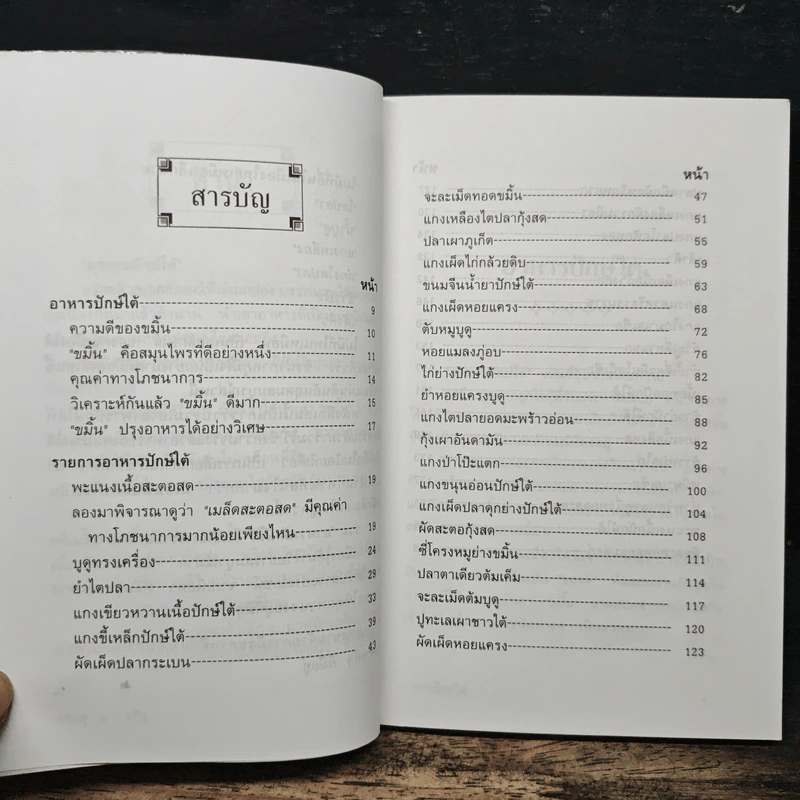 สารบัญ
หน้า
อาหารปักษ์ใต้ 9
ความดีของขมิ้น 10
"ขมิ้น" คือสมุนไพรที่ดีอย่างหนึ่ง 11
คุณค่าทางโภชนาการ 14
วิเคราะห์กันแล้ว "ขมิ้น" ดีมาก 15
"ขมิ้น" ปรุงอาหารได้อย่างวิเศษ 17
รายการอาหารปักษ์ใต้
พะแนงเนื้อสะตอสด 19
ลองมาพิจารณาดูว่า "เมล็ดสะตอสด" มีคุณค่า
ทางโภชนาการมากน้อยเพียงไหน 19
บูดูทรงเครื่อง 24
ยำไตปลา 29
แกงเขียวหวานเนื้อปักษ์ใต้ 33
แกงขี้เหล็กปักษ์ใต้ 39
ผัดเผ็ดปลากระเบน 43
หน้า
จะละเม็ดทอดขมิ้น 47
แกงเหลืองไตปลากุ้งสด 51
ปลาเผาภูเก็ต 55
แกงเผ็ดไก่กล้วยดิบ 59
ขนมจีนน้ำยาปักษ์ใต้ 63
แกงเผ็ดหอยแครง 68
ตับหมูบูดู 72
หอยแมลงภู่อบ 76
ไก่ย่างปักษ์ใต้ 82
ยำหอยแครงบูดู 85
แกงไตปลายอดมะพร้าวอ่อน 88
กุ้งเผาอันดามัน 92
แกงป่าโป๊ะแตก 96
แกงขนุนอ่อนปักษ์ใต้ 100
แกงเผ็ดปลาดุกย่างปักษ์ใต้ 104
ผัดสะตอกุ้งสด 108
ซี่โครงหมูย่างขมิ้น 111
ปลาตาเดียวต้มเค็ม 114
จะละเม็ดต้มบูดู 117
ปูทะเลเผาชาวใต้ 120
ผัดเผ็ดหอยแครง 123